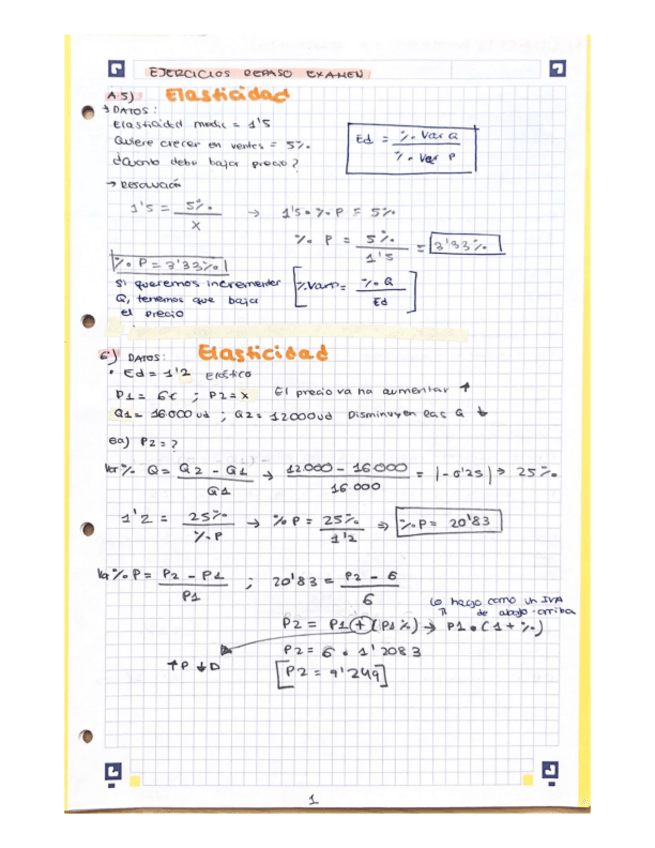 EJERCICIOS REPASO EXAMEN
A5) Elasticidad
→ DATOS:
Elasticidad media = 1'5
Quiere crecer en ventas = 5%
¿Cuanto debe bajar precio?
Ed = % Var Q / % Var P
→ RESOLUCIÓN
1'5 = 5% / X → 1'5 • % P = 5%
% P = 5% / 1'5 = 3'33%
% P = 3'33%
Si queremos incrementar
Q, tenemos que bajar
el precio
% Var P = % Q / Ed
6) DATOS: Elasticidad
• Ed = 1'2 Elástico
P1 = 6€ ; P2 = X El precio va ha aumentar ↑
Q1 = 16000 ud ; Q2 = 12000 ud Disminuyen las Q ↓
6a) P2 = ?
Var % Q = Q2 - Q1 / Q1 → 12.000 - 16.000 / 16.000 = |-0'25| → 25%
1'2 = 25% / % P → % P = 25% / 1'2 ⇒ % P = 20'83
Va % P = P2 - P1 / P1 ; 20'83 = P2 - 6 / 6
Lo hago como un IVA
de abajo-arriba
P2 = P1 + (P1 %) → P1 • (1 + %)
P2 = 6 • 1'2083
↑P ↓D
[P2 = 9'249]
1